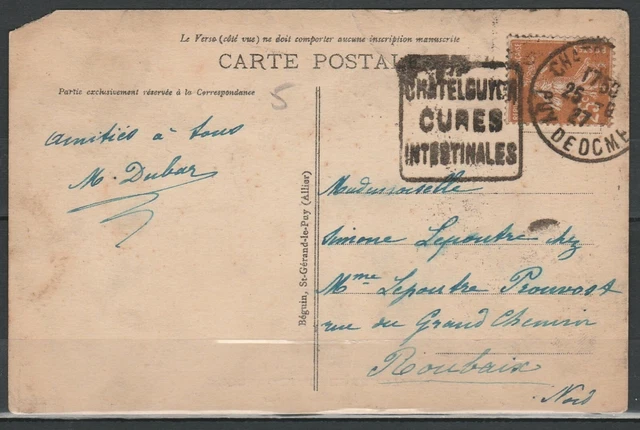 Le Verso (côté vue) ne doit comporter aucune inscription manuscrite
CARTE POSTALE
Partie exclusivement réservée à la Correspondance
5
CHATELGUYON
CURES
INTESTINALES
17 30
25
27
PUY DE DOME
amitiés à tous
M. Dubar
Béguin, St-Gérand-le-Puy (Allier)
Mademoiselle
Simone Lepoutre chez
Mme Lepoutre Prouvost
rue du Grand Chemin
Roubaix
Nord